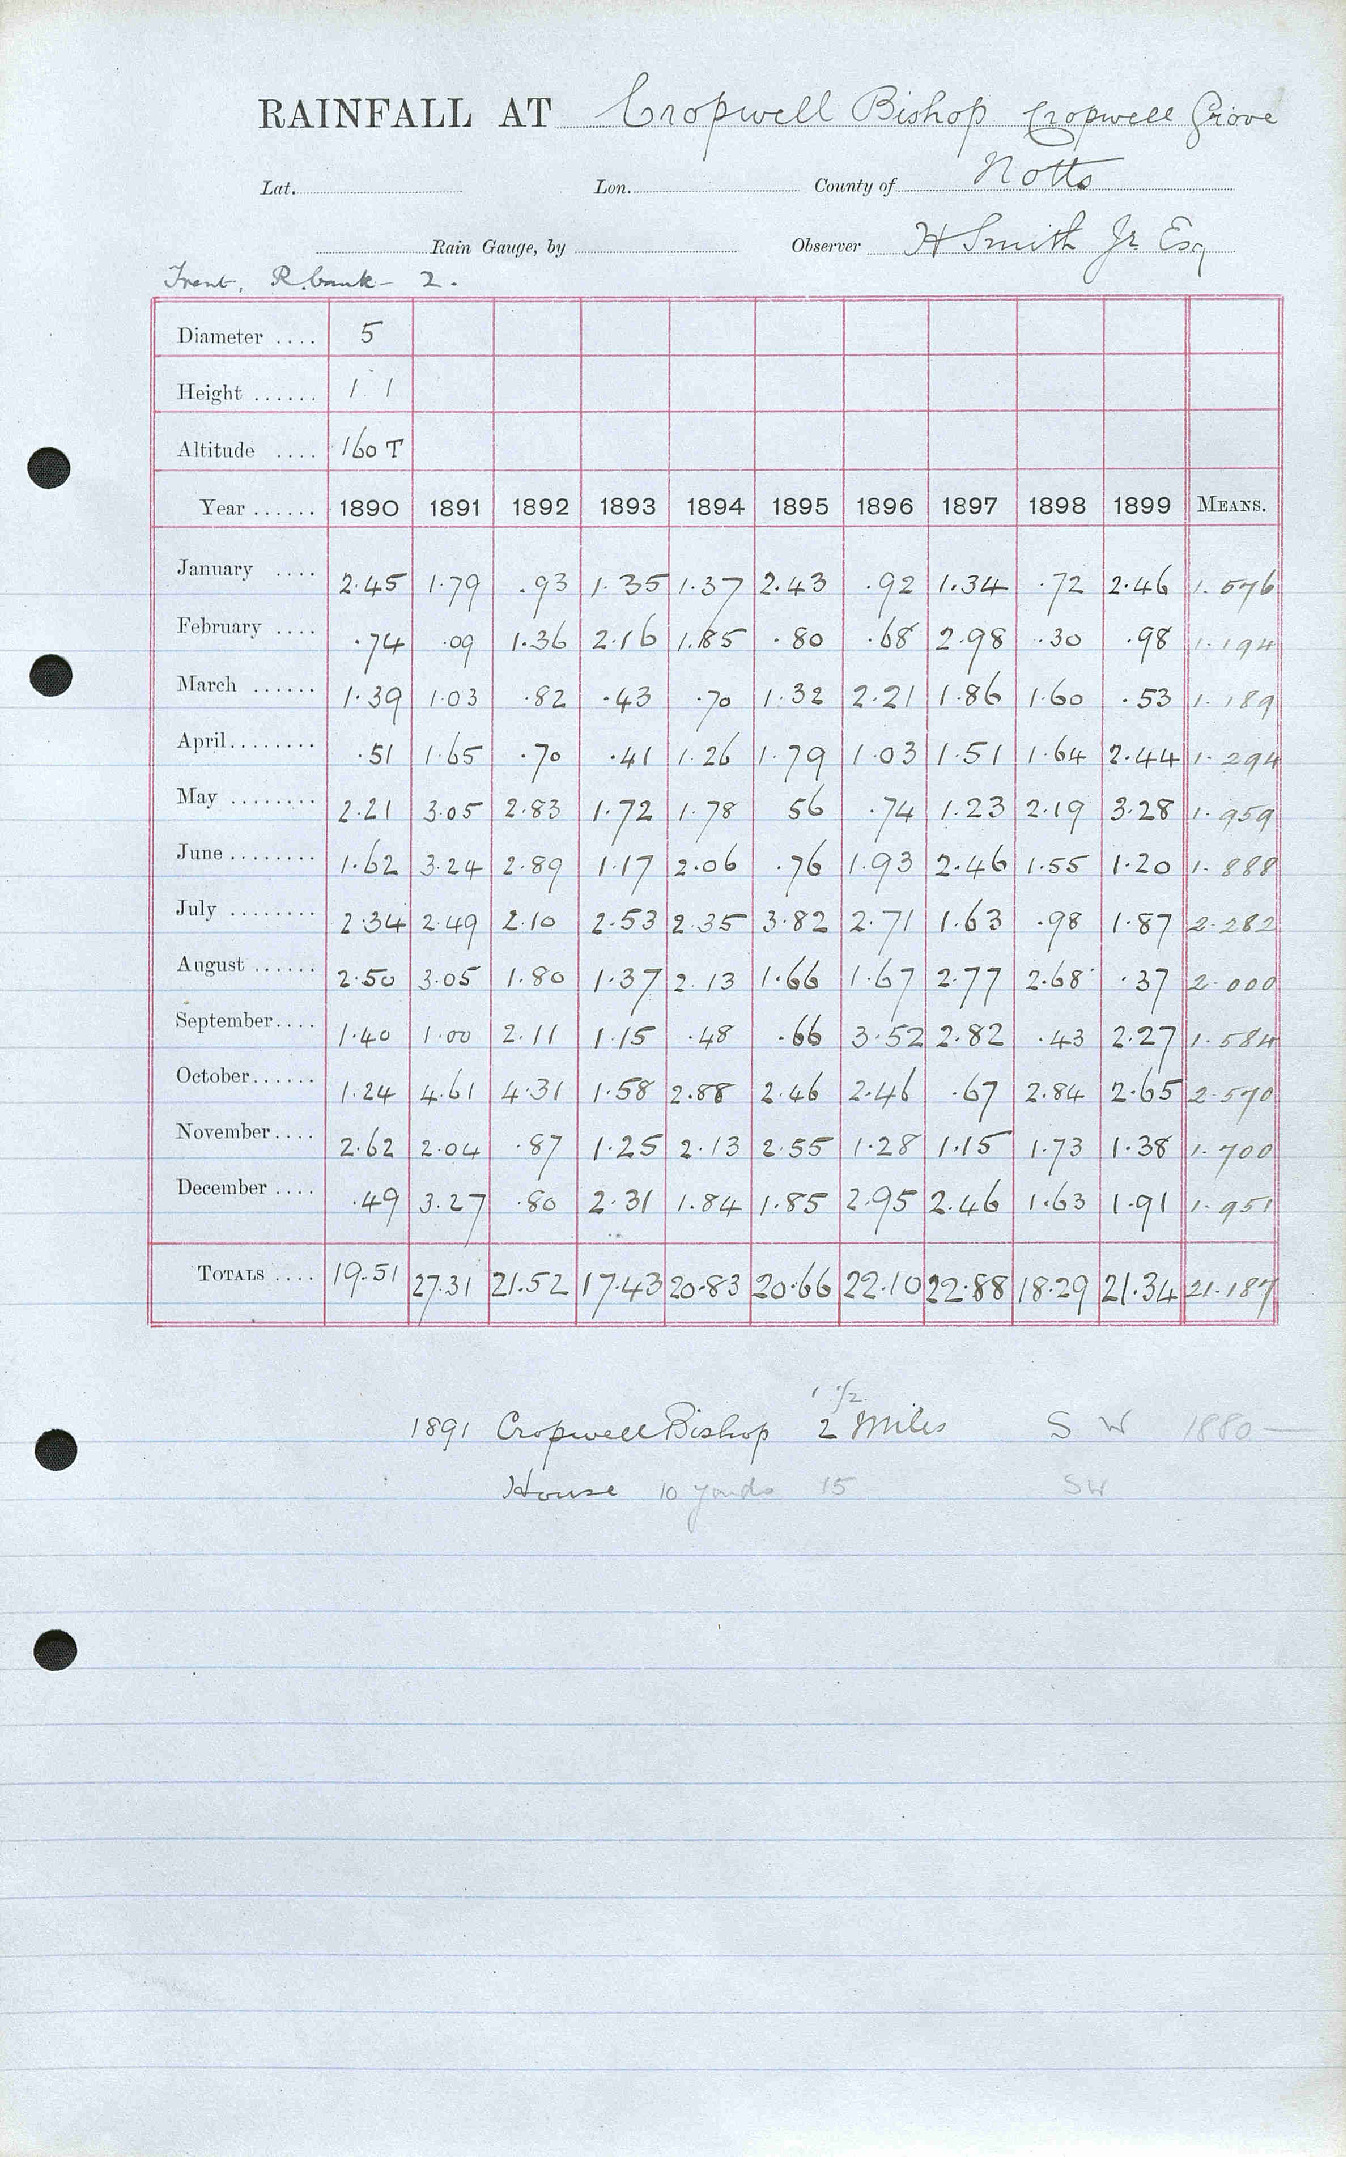 RAINFALL AT Cropwell Bishop Cropwell Grove
Lat. Lon. County of Notts
Rain Gauge, by Observer H Smith Jr Esq
Trent, R. bank - 2.
Diameter .... 5
Height ...... 1 1
Altitude .... 160 T
Year ...... 1890 1891 1892 1893 1894 1895 1896 1897 1898 1899 MEANS.
January .... 2.45 1.79 .93 1.35 1.37 2.43 .92 1.34 .72 2.46 1.576
February .... .74 .09 1.36 2.16 1.85 .80 .68 2.98 .30 .98 1.194
March ...... 1.39 1.03 .82 .43 .70 1.32 2.21 1.86 1.60 .53 1.189
April........ .51 1.65 .70 .41 1.26 1.79 1.03 1.51 1.64 2.44 1.294
May ........ 2.21 3.05 2.83 1.72 1.78 56 .74 1.23 2.19 3.28 1.959
June ........ 1.62 3.24 2.89 1.17 2.06 .76 1.93 2.46 1.55 1.20 1.888
July ........ 2.34 2.49 2.10 2.53 2.35 3.82 2.71 1.63 .98 1.87 2.282
August ...... 2.50 3.05 1.80 1.37 2.13 1.66 1.67 2.77 2.68 .37 2.000
September.... 1.40 1.00 2.11 1.15 .48 .66 3.52 2.82 .43 2.27 1.584
October...... 1.24 4.61 4.31 1.58 2.88 2.46 2.46 .67 2.84 2.65 2.570
November.... 2.62 2.04 .87 1.25 2.13 2.55 1.28 1.15 1.73 1.38 1.700
December .... .49 3.27 .80 2.31 1.84 1.85 2.95 2.46 1.63 1.91 1.951
TOTALS .... 19.51 27.31 21.52 17.43 20.83 20.66 22.10 22.88 18.29 21.34 21.187
1 1/2
1891 Cropwell Bishop 2 Miles S W 1880 —
House 10 yards 15 SW